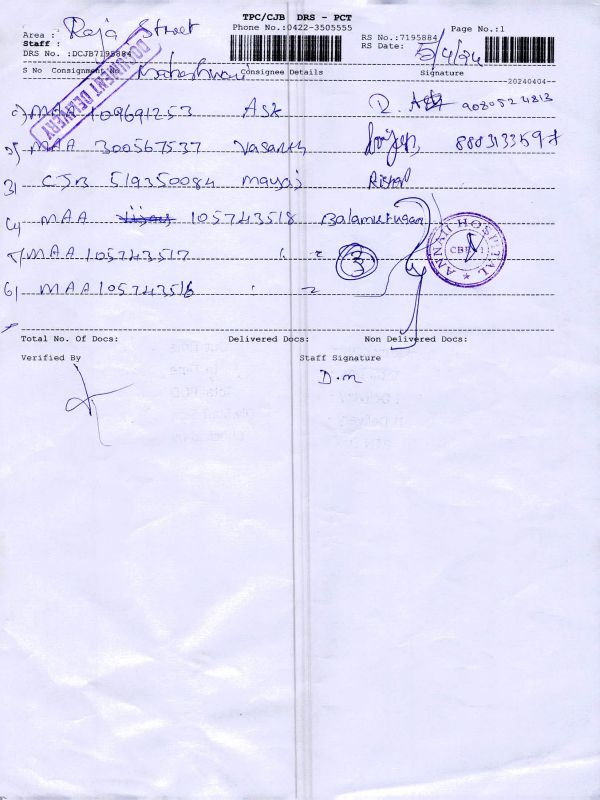 TPC/CJB DRS - PCT
Phone No.:0422-3505555
Page No.:1
Area : Raja Street
RS No.:7195884
Staff :
RS Date: 5/4/24
DRS No. :DCJB7195884
DOCUMENT DELIVERY
S No Consignment No Maheshwari Consignee Details Signature
--20240404--
1) MAA 109691253 Ask 9080524813
2) MAA 300567537 Vasanth 8883133597
3) CJB 519350084 Rishal
4) MAA 105743518 Balamurugan
ANNAII HOSPITAL
CBE-1
5) MAA 105743517 " 3
6) MAA 105743516 "
Total No. Of Docs: Delivered Docs: Non Delivered Docs:
Verified By Staff Signature
D.m